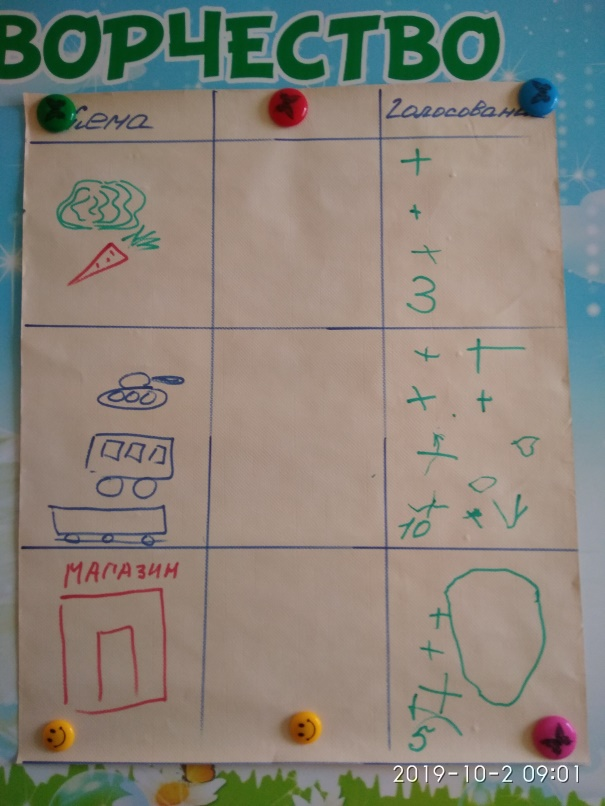 ВОРЧЕСТВО
Тема
Голосовани
3
10
МАГАЗИН
5
2019-10-2 09:01